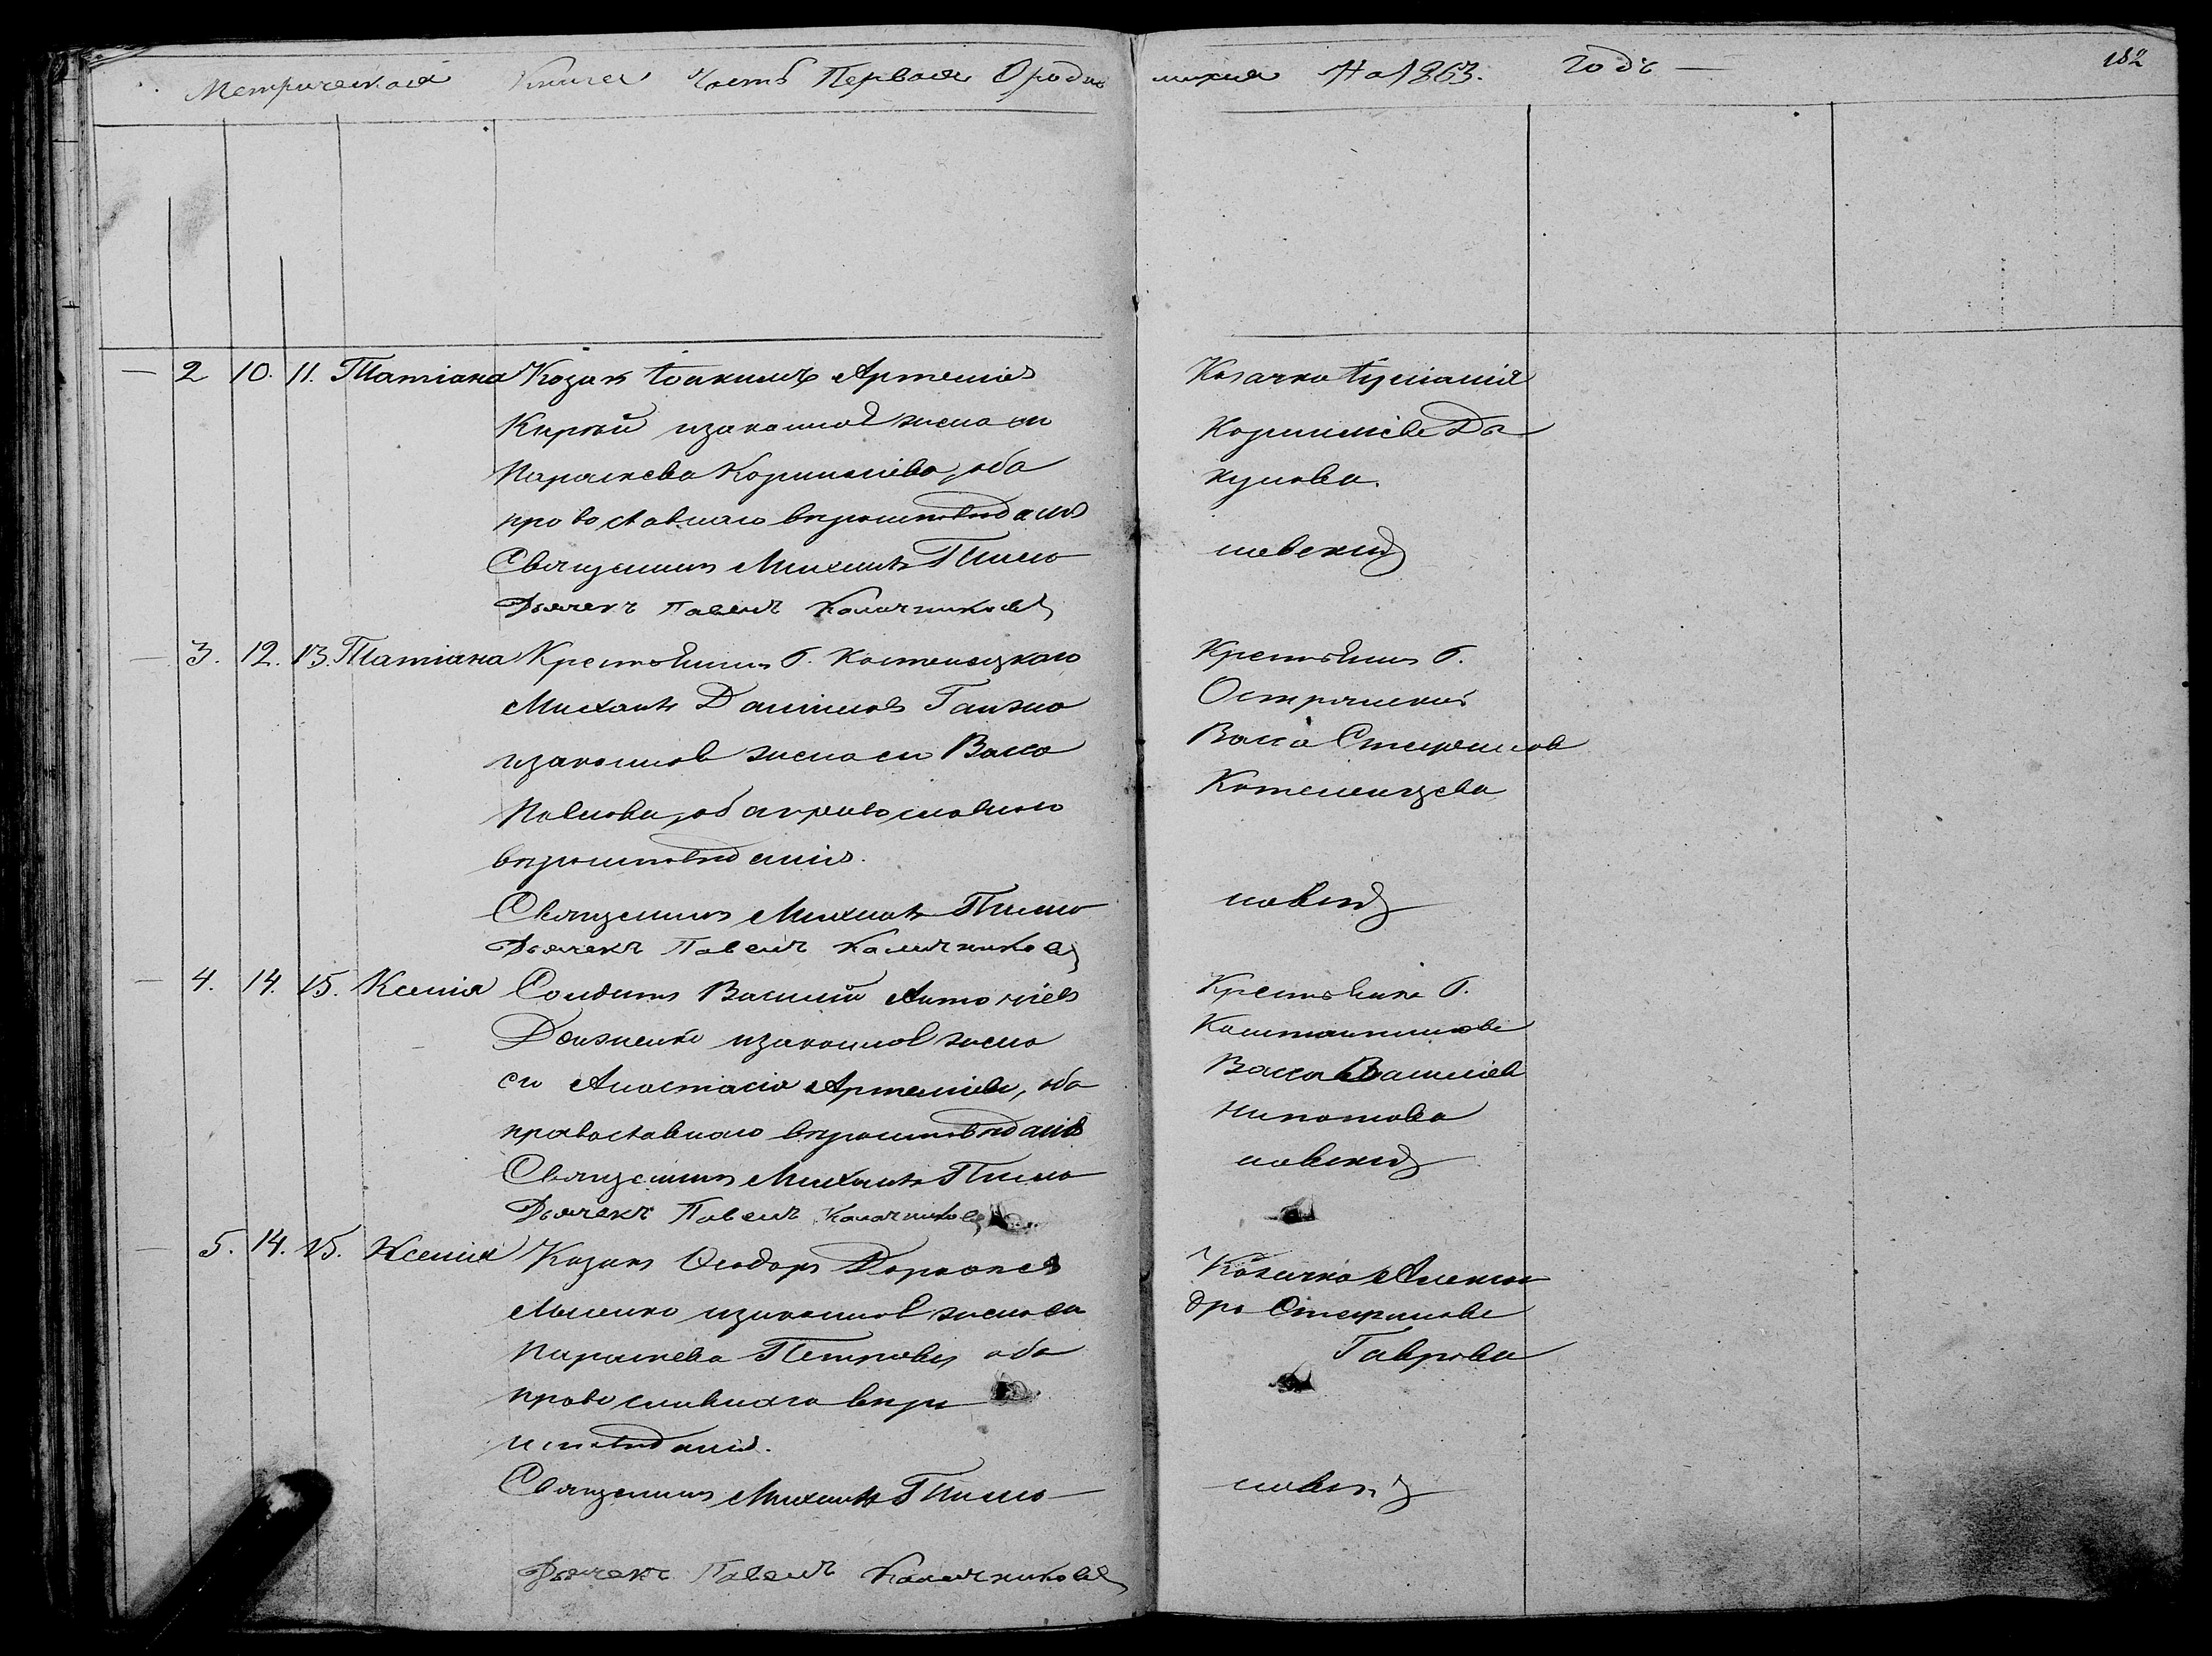 Метрическая Книга Часть Первая О родив
шихся На 1863. Годъ —
182
— 2 10. 11. Татiана Козакъ Іоакимъ Артемiевъ
Кирѣй изаконная жена его
Параскева Корнилiева, оба
православнаго вѣроисповѣданiя
Священникъ Михаилъ Тимо
Дьячекъ Павелъ Калачниковъ
Козачка
Корнилiева Да
кунова.
шевскiй
— 3. 12. 13. Татiана Крестьянинъ Г. Костенецкаго
Михаилъ Данiиловъ
изаконная жена его Васса
Павлова, оба православнаго
вѣроисповѣданiя.
Священникъ Михаилъ Тимо
Дьячекъ Павелъ Калачниковъ
Крестьянка Г.
Васса Стефанова
шевскiй
— 4. 14. 15. Ксенiя Солдатъ Василiй Антонiевъ
изаконная жена
его Анастасiя Артемiева, оба
православнаго вѣроисповѣданiя
Священникъ Михаилъ Тимо
Дьячекъ Павелъ Калачниковъ
Крестьянка Г.
Васса Василiева
шевскiй
— 5. 14. 15. Ксенiя Козакъ Ѳеодоръ
изаконная жена его
Параскева Петрова, оба
православнаго вѣро
исповѣданiя.
Священникъ Михаилъ Тимо
Дьячекъ Павелъ Калачниковъ
Козачка Алексан
дра Стефанова
Гаврова
шевскiй